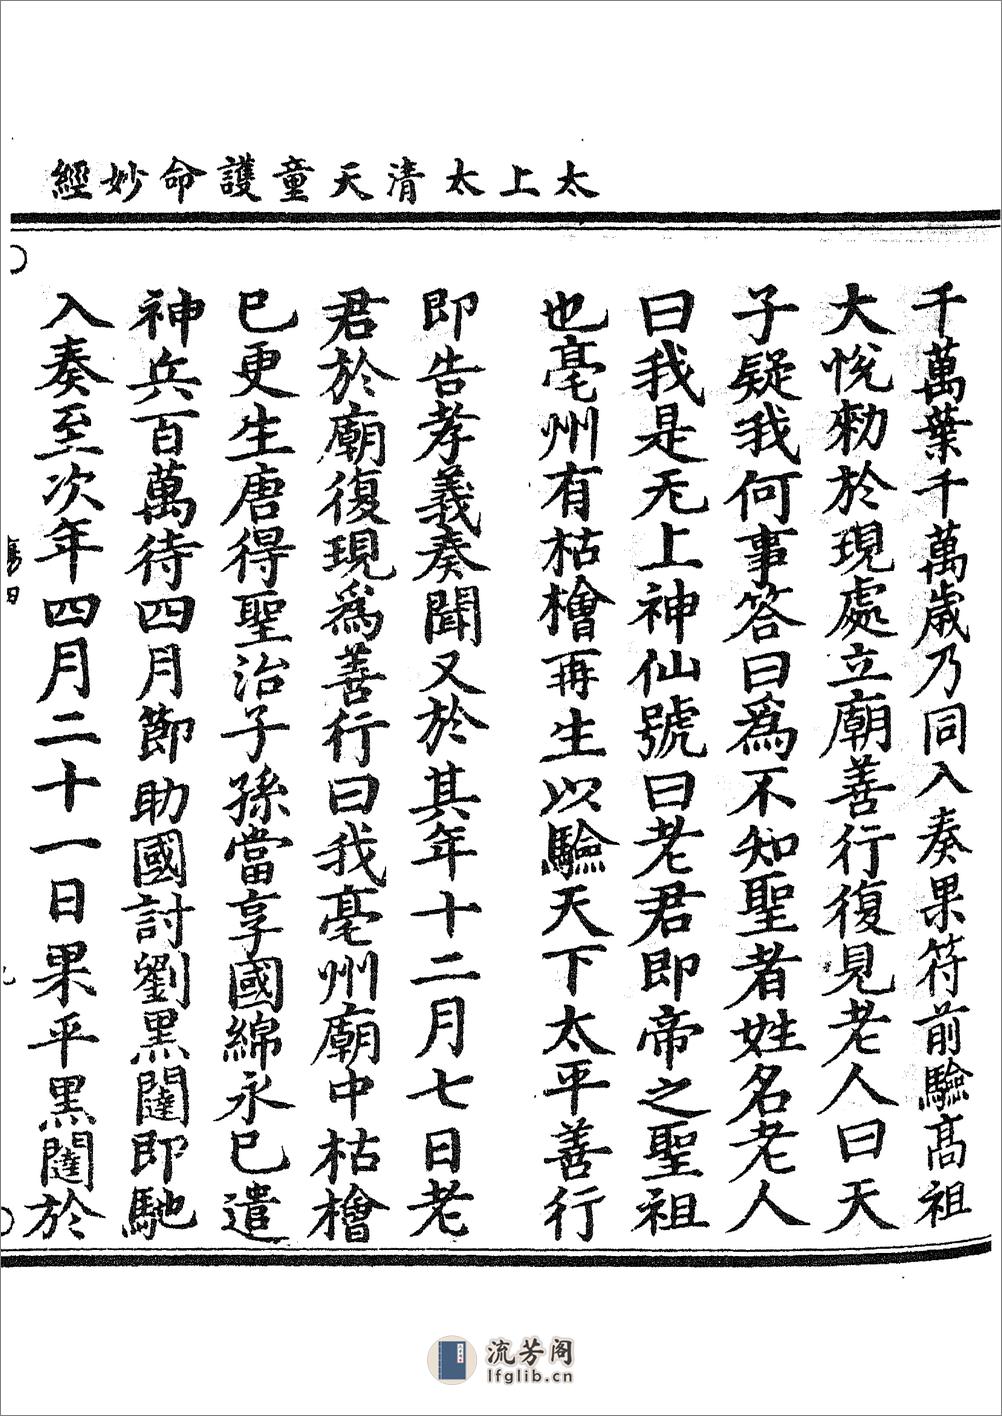 太上太清天童護命妙經
千萬葉千萬歲乃同入奏果符前驗高祖
大悅勑於現處立廟善行復見老人曰天
子疑我何事答曰爲不知聖者姓名老人
曰我是无上神仙號曰老君即帝之聖祖
也亳州有枯檜再生以驗天下太平善行
即告孝義奏聞又於其年十二月七日老
君於廟復現爲善行曰我亳州廟中枯檜
已更生唐得聖治子孫當享國綿永已遣
神兵百萬待四月節助國討劉黑闥即馳
入奏至次年四月二十一日果平黑闥於
流芳阁
lfglib.cn